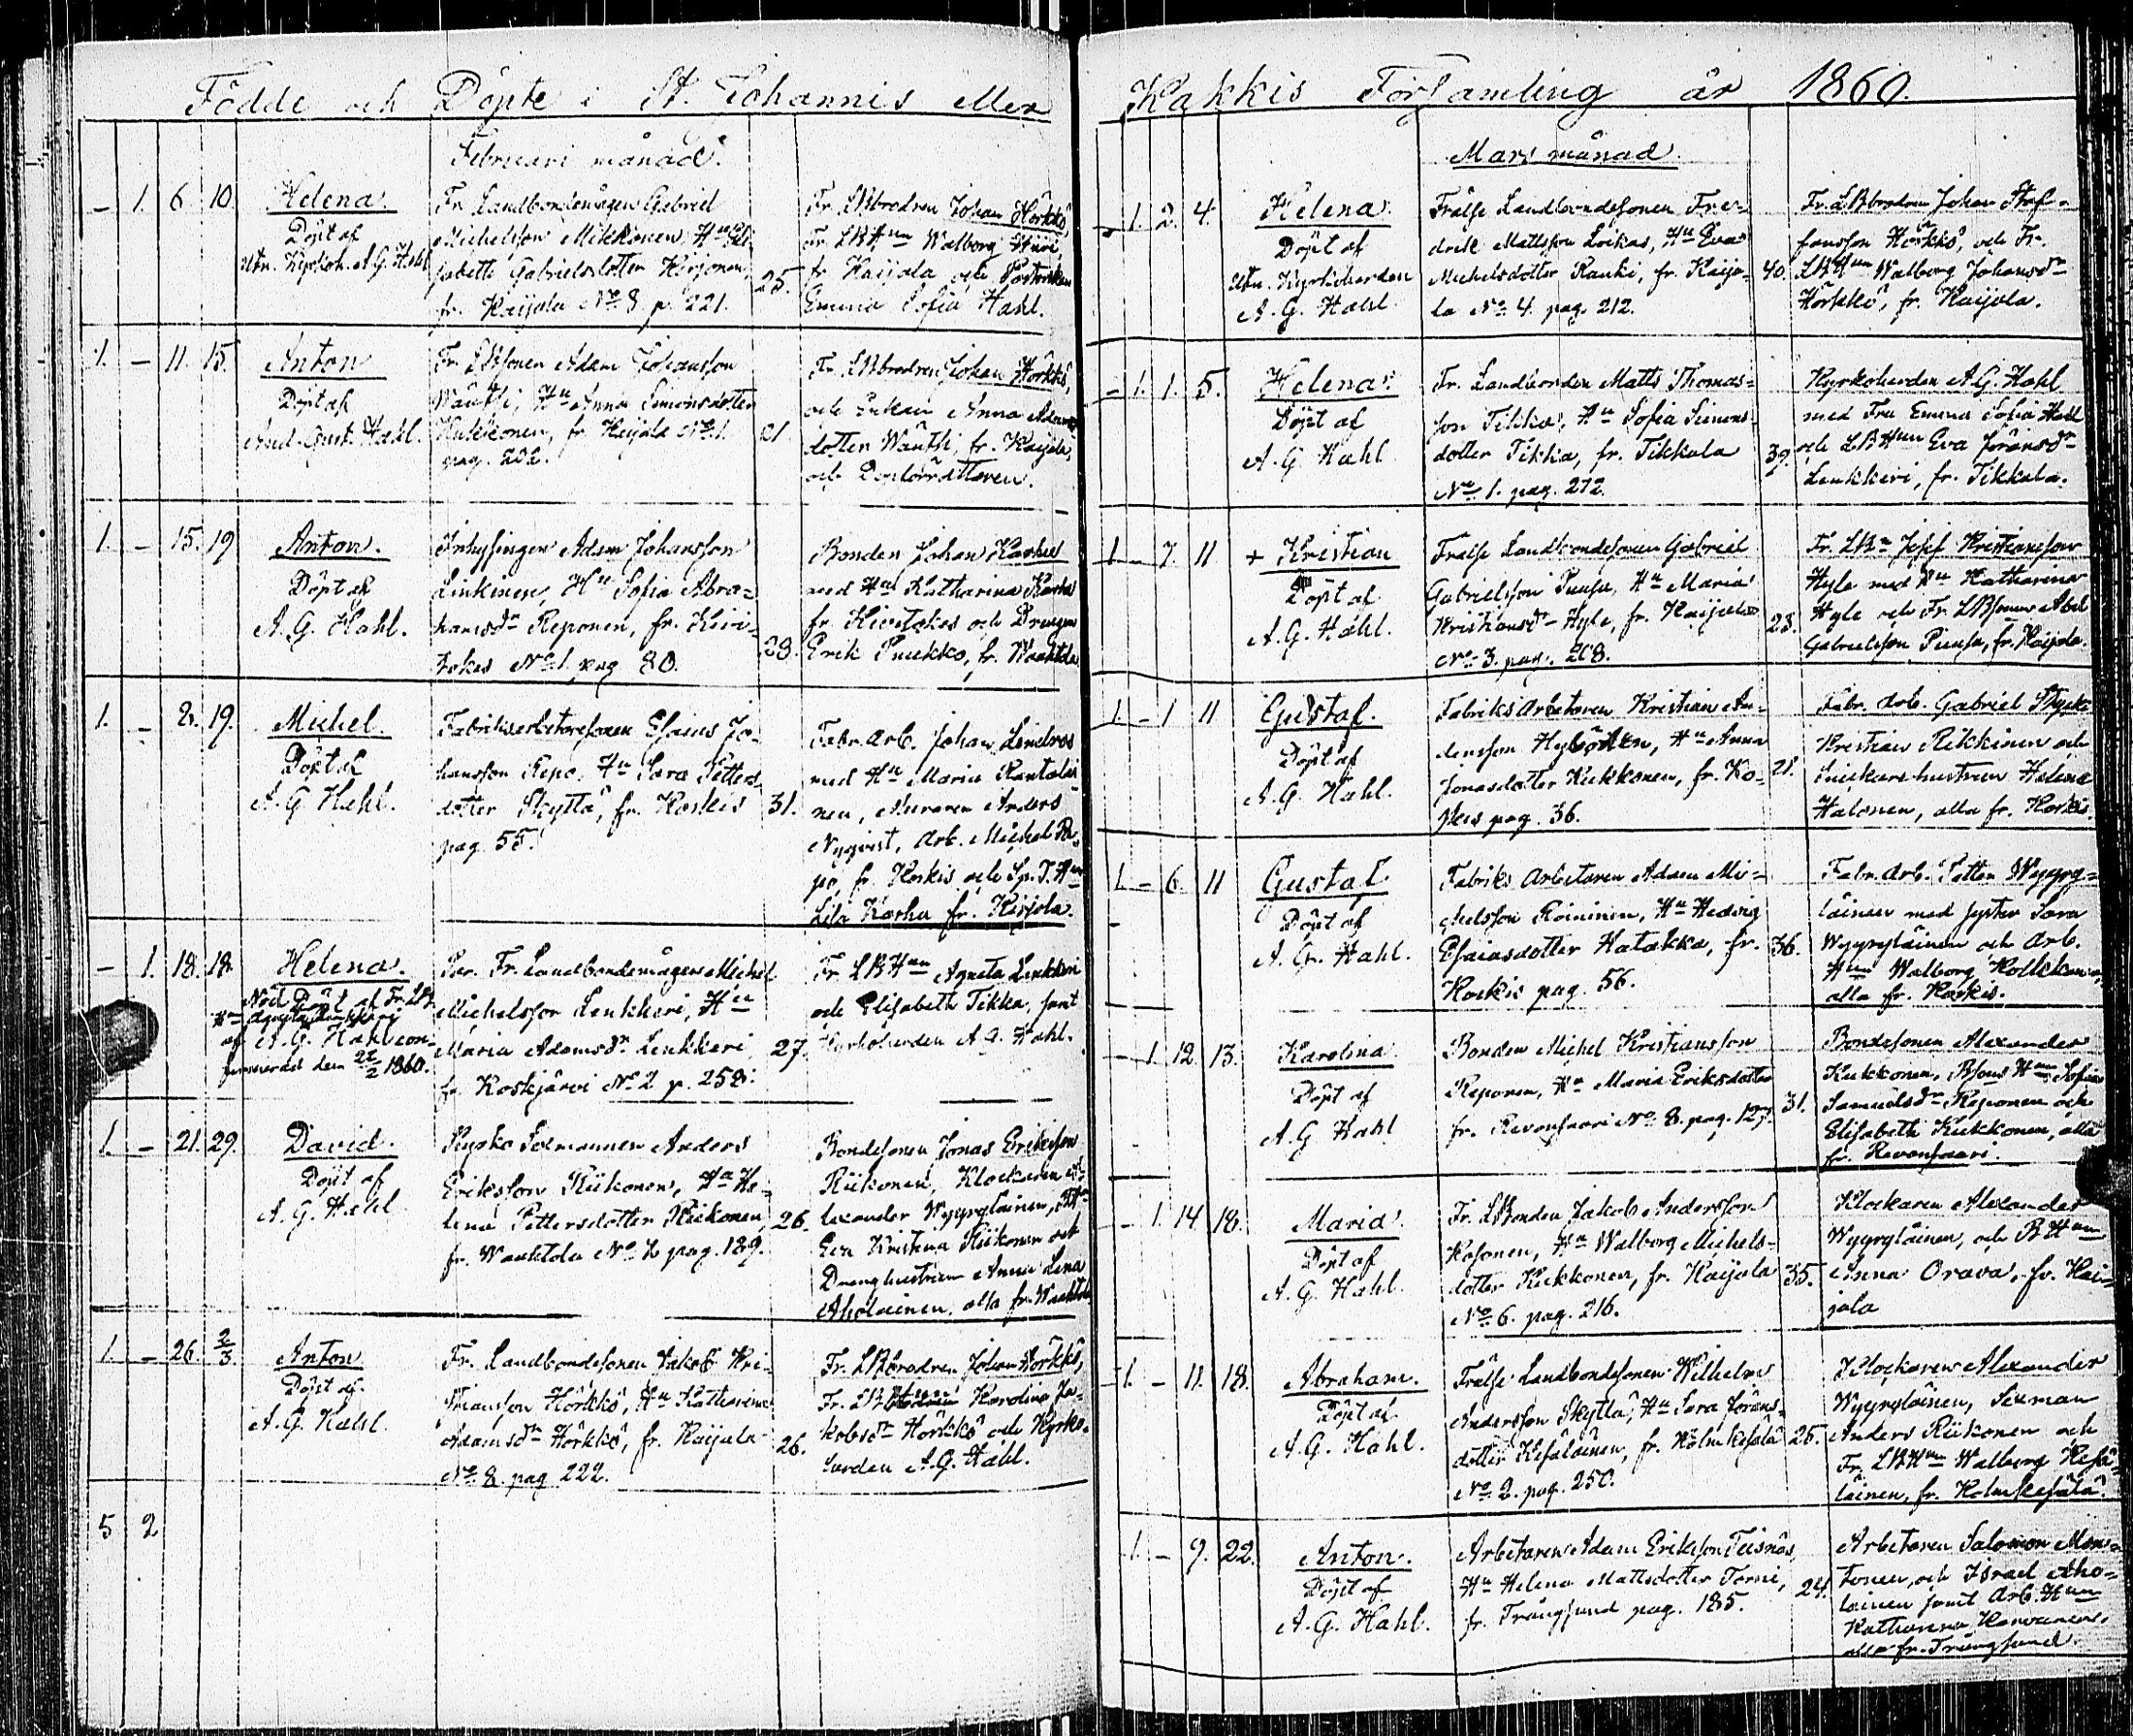 Födde och Döpte i St. Johannis eller
Februari månad.
- 1. 6 10. Helena.
Döpt af
Utn. Kyrkoh. A. G. Hahl
Fr. Landbondemågen Gabriel
Michelsson Mikkonen, Hu Eli-
sabeth Gabrielsdotter Kirjonen,
fr. Kaijola No 8 p. 221.
25.
Fr. LBbrodren Johan Hörkkö,
Fr. LBHun Walborg
fr. Kaijola och
Emma Sofia Hahl.
1. - 11. 15. Anton
Döpt af
And. Gust. Hahl.
Fr. LBsonen Adam Johansson
Wänthi, Hu Anna Simonsdotter
Kukkonen, fr. Kaijola No 1.
pag. 202.
21.
Fr. LBbrodren Johan Hörkkö,
och Enkan Anna Adams-
dotter Wänthi, fr. Kaijola,
och Dopförrättaren.
1. - 15. 19 Anton.
Döpt af
A. G. Hahl.
Inhysingen Adam Johansson
Linkinen, Hu Sofia Abra-
hamsdr Reponen, fr. Kivi-
okas No 1. pag 80.
28.
Bonden Johan Karhu
med Hu Katharina Karhu
fr. och Drengen
Erik Puukko, fr. Waahtola
1. - 2. 19. Michel.
Döpt af
A. G. Hahl.
Fabriksarbetaresonen Esaias Jo-
hansson Repo, Hu Sara Petters-
dotter Skyttä, fr. Koskis
pag. 55.
31.
Fabr. Arb. Johan Lindros
med Hu Maria Rantalai-
nen, Muraren Anders
Nyqvist, Arb. Michel Re-
po, fr. Koskis och Hun
Lisa Karhu fr. Kirjola.
- 1. 18. 18. Helena.
Nöd Döpt af Fr. LB
Hun Agneta Lenkkeri
af A. G. Hahl con-
firmeradt den 22/2 1860.
Fr. Landbondemågen Michel
Michelsson Lenkkeri, Hu
Maria Adamsdr Lenkkeri
fr. Koskjärvi No 2 p. 258.
27.
Fr. LBHun Agneta Lenkkeri
och Elisabeth Tikka, samt
Kyrkoherden A. G. Hahl.
1. - 21. 29. David.
Döpt af
A. G. Hahl
Kyrko Sexmannen Anders
Eriksson Riikonen, Hu He-
lena Pettersdotter Riikonen,
fr. Waahtola No 2 pag. 189.
26.
Bondesonen Jonas Eriksson
Riikonen, Klockaren A-
lexander Wyyryläinen,
Eva Kristina Riikonen och
Dränghustrun Anna Lena
Aholainen, alla fr. Waahtola
1. - 26. 2/3 Anton
Döpt af
A. G. Hahl
Fr. Landbondesonen Jakob Kri-
stiansson Hörkkö, Hu Katharina
Adamsdr Hörkkö, fr. Kaijola
No 8. pag 222.
26.
Fr. LBbrodren Johan Hörkkö,
Fr. LB Karolina Ja-
kobsdr Hörkkö och Kyrko-
herden A. G. Hahl.
5 2
Kakkis Församling år 1860.
Mars månad.
- 1. 2. 4. Helena.
Döpt af
Utn. Kyrkoherden
A. G. Hahl
Frälse Landbondesonen Fre-
drik Mattsson Loikas, Hu Eva
Michelsdotter Ranki, fr. Kaijo-
la No 4. pag. 212.
40.
Fr. LBbrodren Johan Staf-
fansson Hörkkö, och Fr.
LBHun Walborg Johansdr
Hörkkö, fr. Kaijola.
- 1. 1. 5. Helena.
Döpt af
A. G. Hahl
Fr. Landbonden Matts Thomas-
son Tikka, Hu Sofia Simons-
dotter Tikka, fr. Tikkala
No 1. pag. 272.
39.
Kyrkoherden A. G. Hahl
med Fru Emma Sofia Hahl
och LBHun Eva Jöransdr
Lenkkeri, fr. Tikkala.
1 - 7. 11 + Kristian
Döpt af
A. G. Hahl.
Frälse Landbondesonen Gabriel
Gabrielsson Puusa, Hu Maria
Kristiansdr Hyle, fr. Kaijola
No 3. pag. 208.
23.
Fr. LBn Josef Kristiansson
Hyle med Hu Katharina
Hyle och Fr. LBsonen Abel
Gabrielsson Puusa, fr. Kaijola.
1. - 1 11 Gustaf.
Döpt af
A. G. Hahl.
Fabriks Arbetaren Kristian An-
dersson Hybötten, Hu Anna
Jonasdotter Kukkonen, fr. Ko-
skis pag. 36.
21.
Fabr. Arb. Gabriel
Kristian Rikkinen och
Snickare hustrun Helena
Halonen, alla fr. Koskis.
1. - 6. 11 Gustaf.
Döpt af
A. G. Hahl.
Fabriks Arbetaren Adam Mi-
chelsson Roininen, Hu Hedvig
Esaiasdotter Hatakka, fr.
Koskis pag. 56.
36.
Fabr. Arb. Petter Wyyry-
läinen med syster Sara
Wyyryläinen och Arb.
Hun Walborg
alla fr. Koskis.
- 1. 12. 13. Karolina
Döpt af
A. G Hahl
Bonden Michel Kristiansson
Reponen, Hu Maria Eriksdotter
fr. Revonsaari No 8. pag. 127.
31.
Bondesonen Alexander
Kukkonen, Bsons Hun Sofia
Samuelsdr Reponen och
Elisabeth Kukkonen, alla
fr. Revonsaari.
- 1. 14 18. Maria.
Döpt af
A. G. Hahl.
Fr. LBonden Jakob Andersson
Kosonen, Hu Walborg Michels-
dotter Kukkonen, fr. Kaijola
No 6. pag. 216.
35.
Klockaren Alexander
Wyyryläinen, och BHun
Anna Orava, fr. Kai-
jola
1. - 11. 18. Abraham.
Döpt af
A. G. Hahl.
Frälse Landbondesonen Wilhelm
Andersson Skyttä, Hu Sara Jörans-
dotter Kesäläinen, fr. Kolmikesälä
No 2. pag. 250.
25.
Klockaren Alexander
Wyyryläinen, Sexman
Anders Riikonen och
Fr. LBHun Walborg Kesä-
läinen, fr. Kolmikesälä.
1. - 9. 22. Anton.
Döpt af
A. G. Hahl.
Arbetaren Adam Eriksson Teisnäs,
Hu Helena Mattsdotter Torni,
fr. Trångsund pag. 185.
24.
Arbetaren Salomon Mon-
tonen, och Israel Aho-
lainen samt Arb. Hun
Katharina Karvanen,
alla fr. Trångsund.